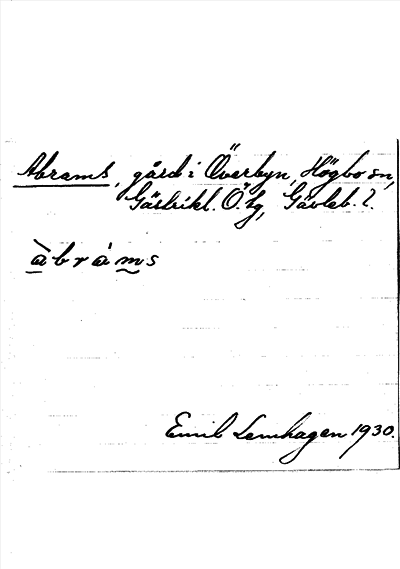 Abrams, gård i Överbyn, Högbo sn,
Gästrikl. Ö. tg, Gävleb. l.
àbràms
Emil Lemhagen 1930.